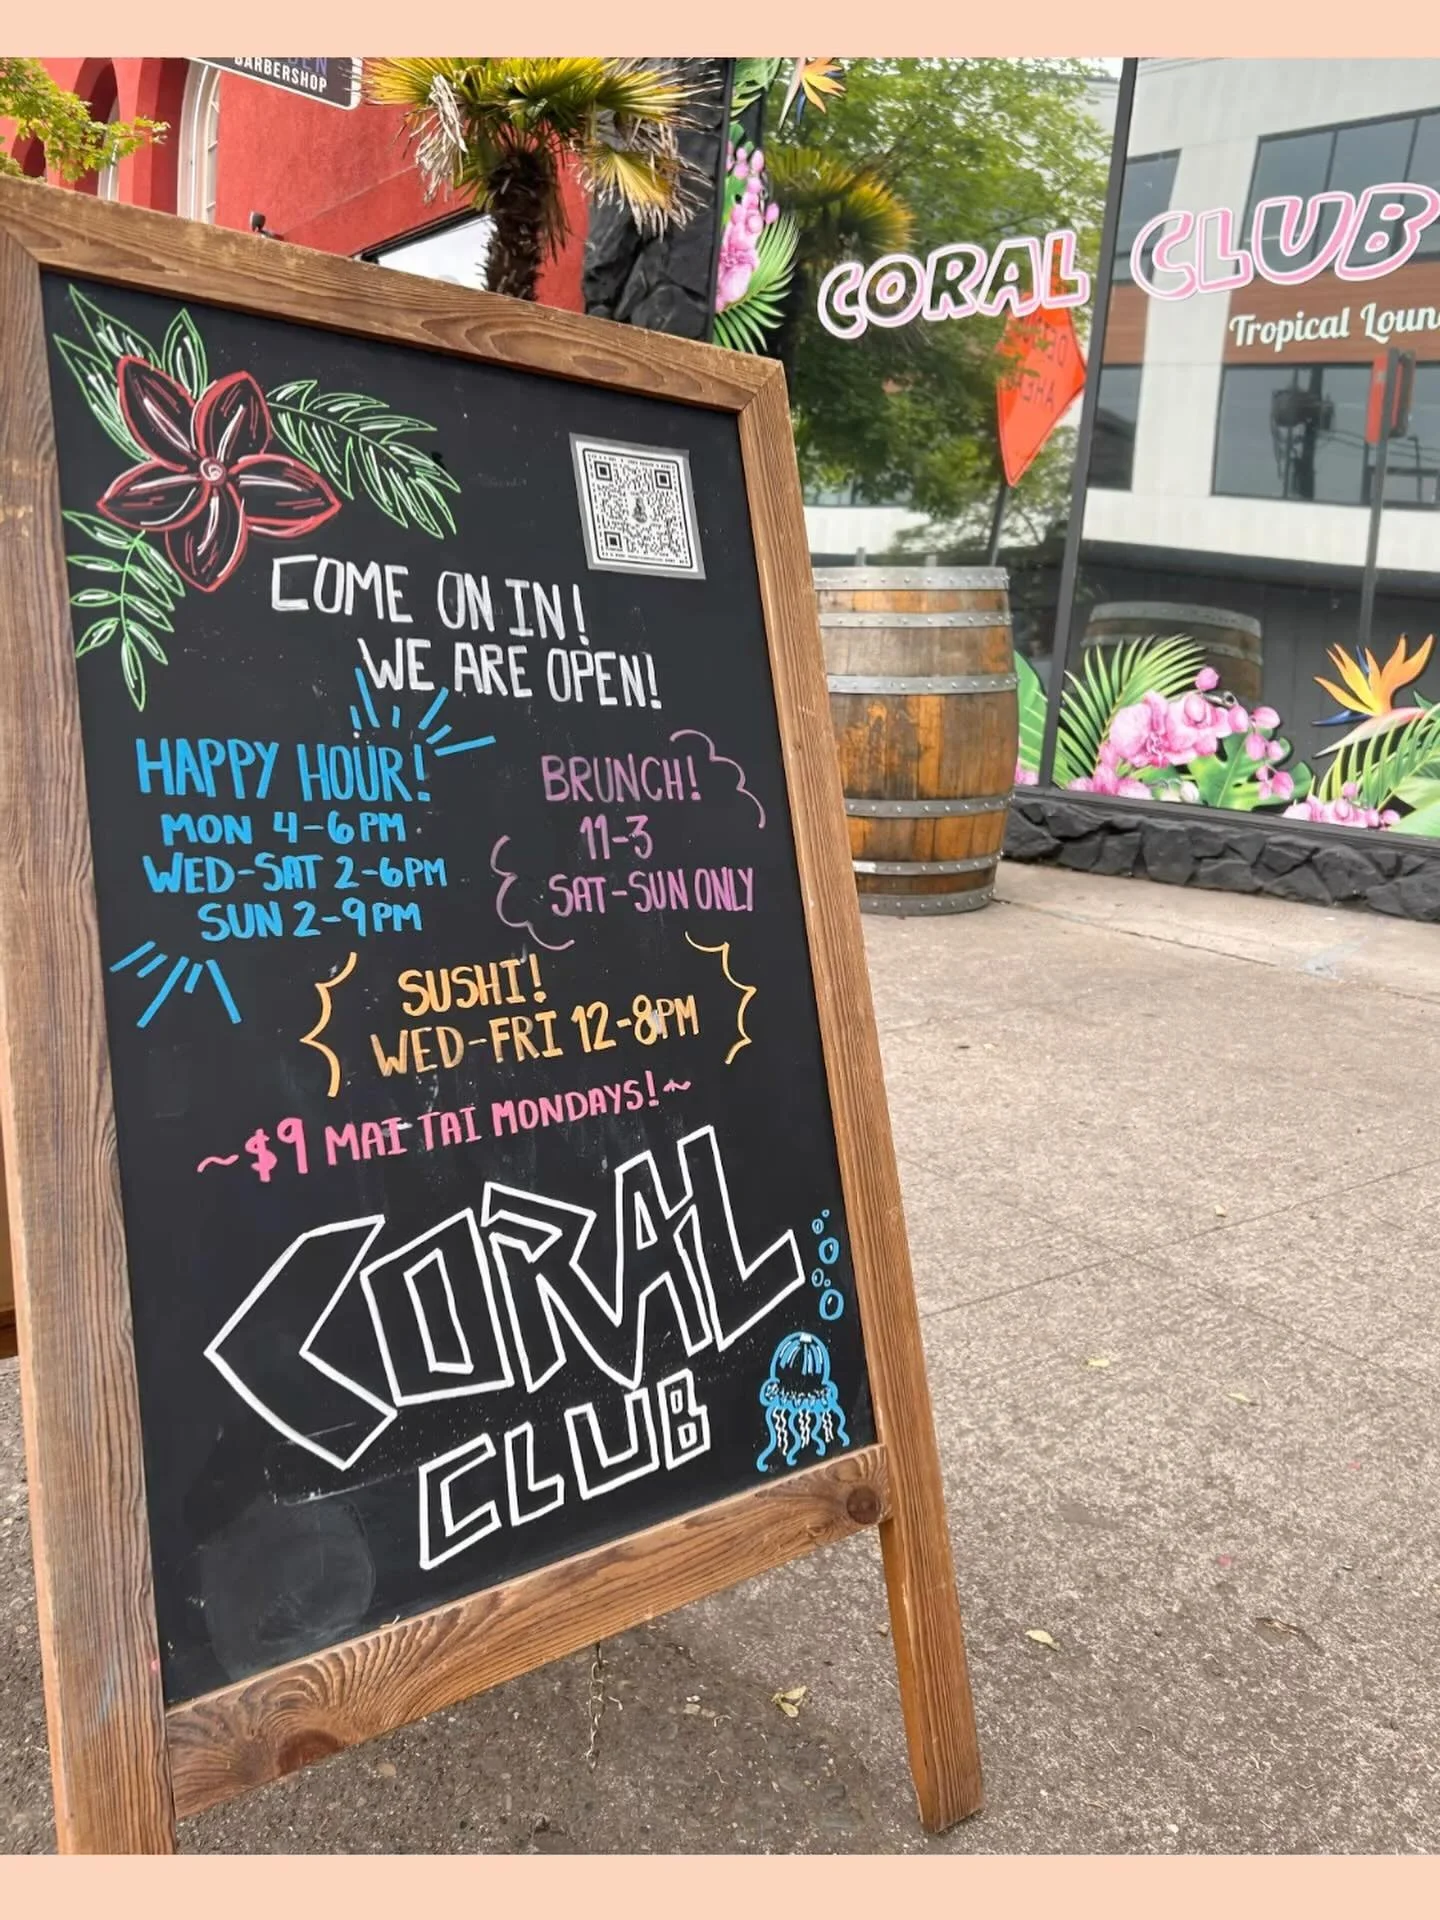 BARBERSHOP
CORAL CLUB
Tropical
COME ON IN!
WE ARE OPEN!
HAPPY HOUR!
MON 4-6PM
WED-SAT 2-6PM
SUN 2-9PM
BRUNCH!
11-3
SAT-SUN ONLY
SUSHI!
WED-FRI 12-8PM
~$9 MAI TAI MONDAYS!~
CORAL
CLUB